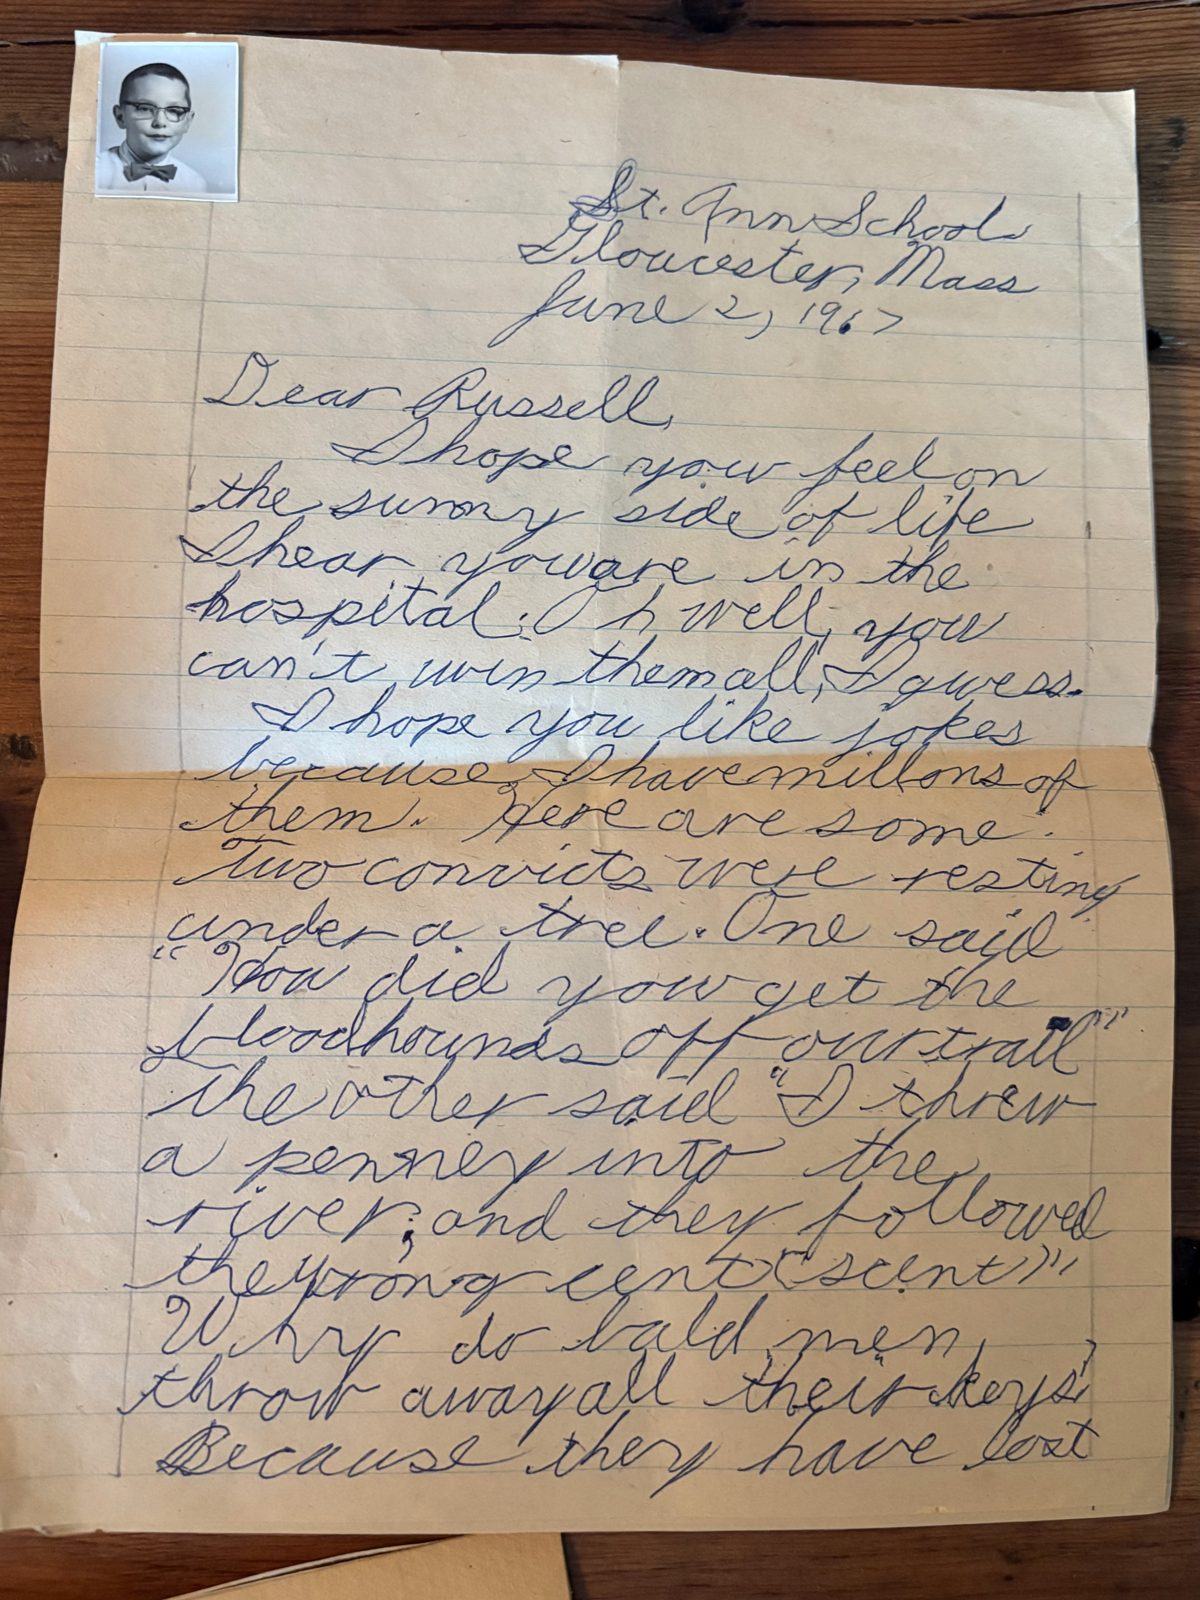 St. Ann School
Gloucester, Mass
June 2, 1967
Dear Russell,
I hope you feel on
the sunny side of life
I hear you are in the
hospital. Oh well, you
can't win them all, I guess.
I hope you like jokes
because I have millons of
them. Here are some.
Two convicts were resting
under a tree. One said
"How did you get the
bloodhounds off our trail"
The other said "I threw
a penney into the
river; and they followed
the wrong cent (scent)"
Why do bald men
throw away all their keys?
Because they have lost